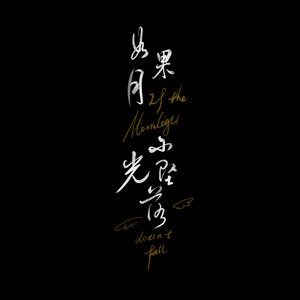 如果
月光
If the
Moonlight
不坠落
doesn't
fall